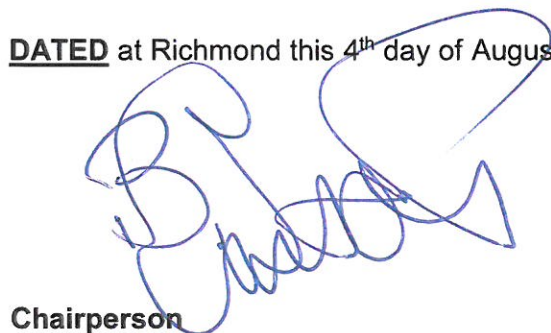 DATED at Richmond this 4th day of Augus
Chairperson